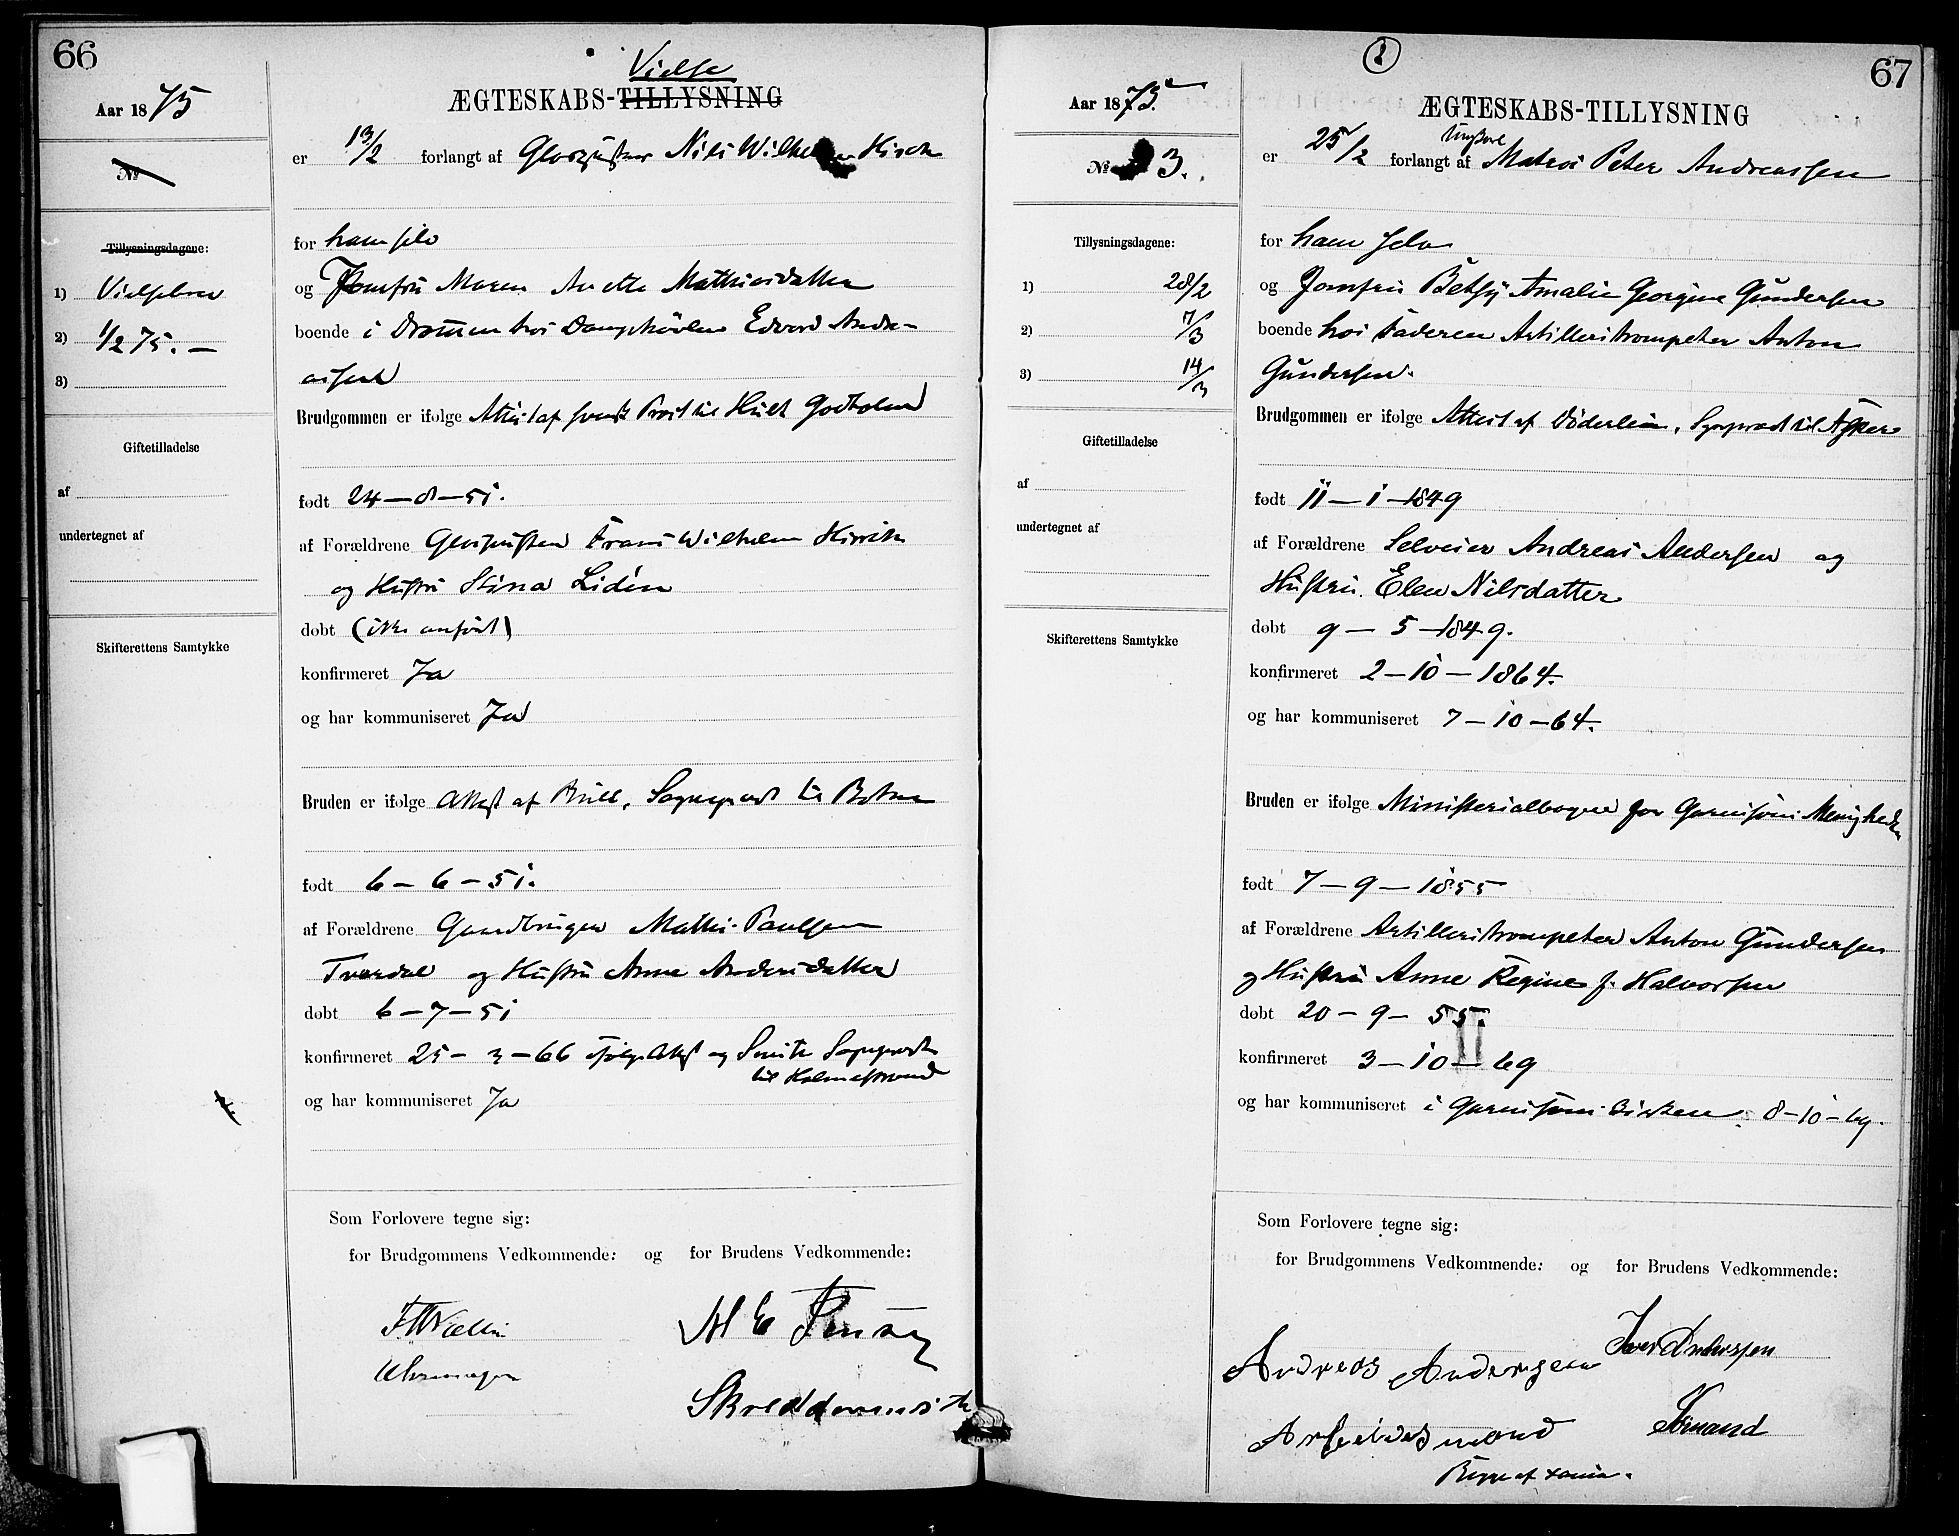 66
Vielse
Aar 1875
ÆGTESKABS-TILLYSNING
№
er 13/2 forlangt af Nils Wilhelm
for ham selv
Tillysningsdagene:
og Jomfru Maren Anette Mathisdatter
1) Vielsebrev
boende i Drammen hos Edvard Andre-
2) 1/2 75. —
assen
3)
Brudgommen er ifølge Attest af svensk Præst til
Giftetilladelse
født 24 — 8 — 51.
af
af Forældrene Frans Wilhelm
undertegnet af
og Hustru Stina Lidén
døbt (ikke anført)
Skifterettens Samtykke
konfirmeret Ja
og har kommuniseret Ja
Bruden er ifølge Attest af Bull, Sognepræst til Botne
født 6 — 6 — 51.
af Forældrene Gaardbruger Mathis Paulsen
Tverdal og Hustru Anne Andersdatter
døbt 6 — 7 — 51
konfirmeret 25 — 3 — 66 ifølge Attest af Smith Sognepræst
til Holmestrand
og har kommuniseret Ja
Som Forlovere tegne sig:
for Brudgommens Vedkommende: og for Brudens Vedkommende:
Uhrmager
Skreddermester
67
2
Aar 1875
ÆGTESKABS-TILLYSNING
№ 3.
Ungkarl
er 25/2 forlangt af Matros Peter Andreassen
for ham selv
Tillysningsdagene:
og Jomfru Betsy Amalie Georgine Gundersen
1) 28/2
boende hos Faderen Artilleritrompeter Anton
2) 7/3
Gundersen.
3) 14/3
Brudgommen er ifølge Attest af Döderlein, Sognepræst til Asker
Giftetilladelse
født 11 — 1 — 1849
af
af Forældrene Selveier Andreas Andersen og
undertegnet af
Hustru Elen Nilsdatter
døbt 9 — 5 — 1849.
Skifterettens Samtykke
konfirmeret 2 — 10 — 1864.
og har kommuniseret 7 — 10 — 64.
Bruden er ifølge Ministerialbogen for Garnisons Menigheden
født 7 — 9 — 1855
af Forældrene Artilleritrompeter Anton Gundersen
og Hustru Anne Regine f. Halvorsen
døbt 20 — 9 — 55.
konfirmeret 3 — 10 — 69
og har kommuniseret i Garnisons Kirken 8 — 10 — 69.
Som Forlovere tegne sig:
for Brudgommens Vedkommende: og for Brudens Vedkommende:
Iver Anderssen
Andreas Andersen
Sömand
Arbeidsmand